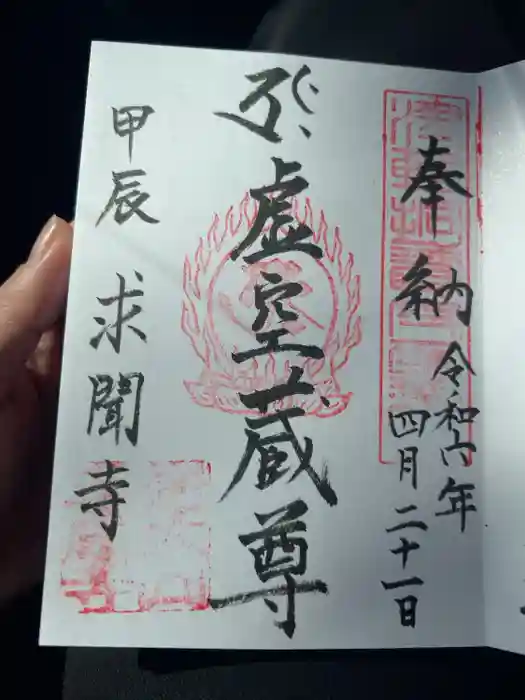 奉納
令和六年
四月二十一日
虚空蔵尊
甲辰 求聞寺